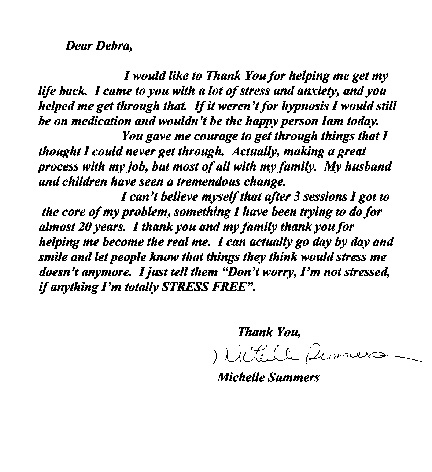 Dear Debra,
I would like to Thank You for helping me get my
life back. I came to you with a lot of stress and anxiety, and you
helped me get through that. If it weren't for hypnosis I would still
be on medication and wouldn't be the happy person Iam today.
You gave me courage to get through things that I
thought I could never get through. Actually, making a great
process with my job, but most of all with my family. My husband
and children have seen a tremendous change.
I can't believe myself that after 3 sessions I got to
the core of my problem, something I have been trying to do for
almost 20 years. I thank you and my family thank you for
helping me become the real me. I can actually go day by day and
smile and let people know that things they think would stress me
doesn't anymore. I just tell them “Don't worry, I'm not stressed,
if anything I'm totally STRESS FREE”.
Thank You,
Michelle Summers
Michelle Summers